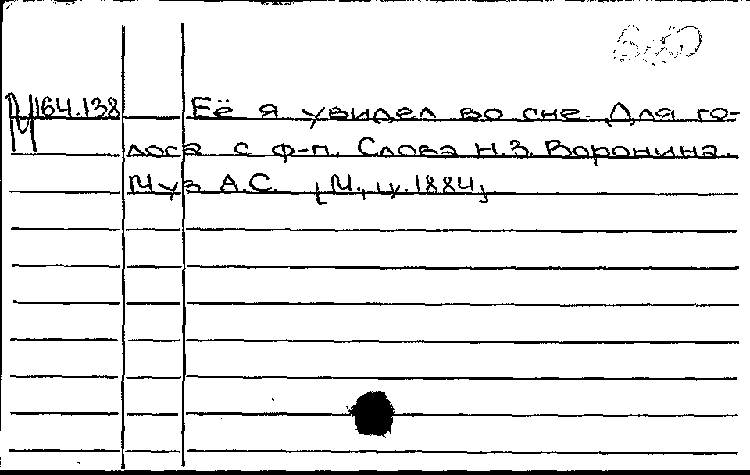 М164.138 Её я увидел во сне. Для го-
лоса с ф-п. Слова Н.З. Воронина.
Муз А.С. [М., ц. 1884]